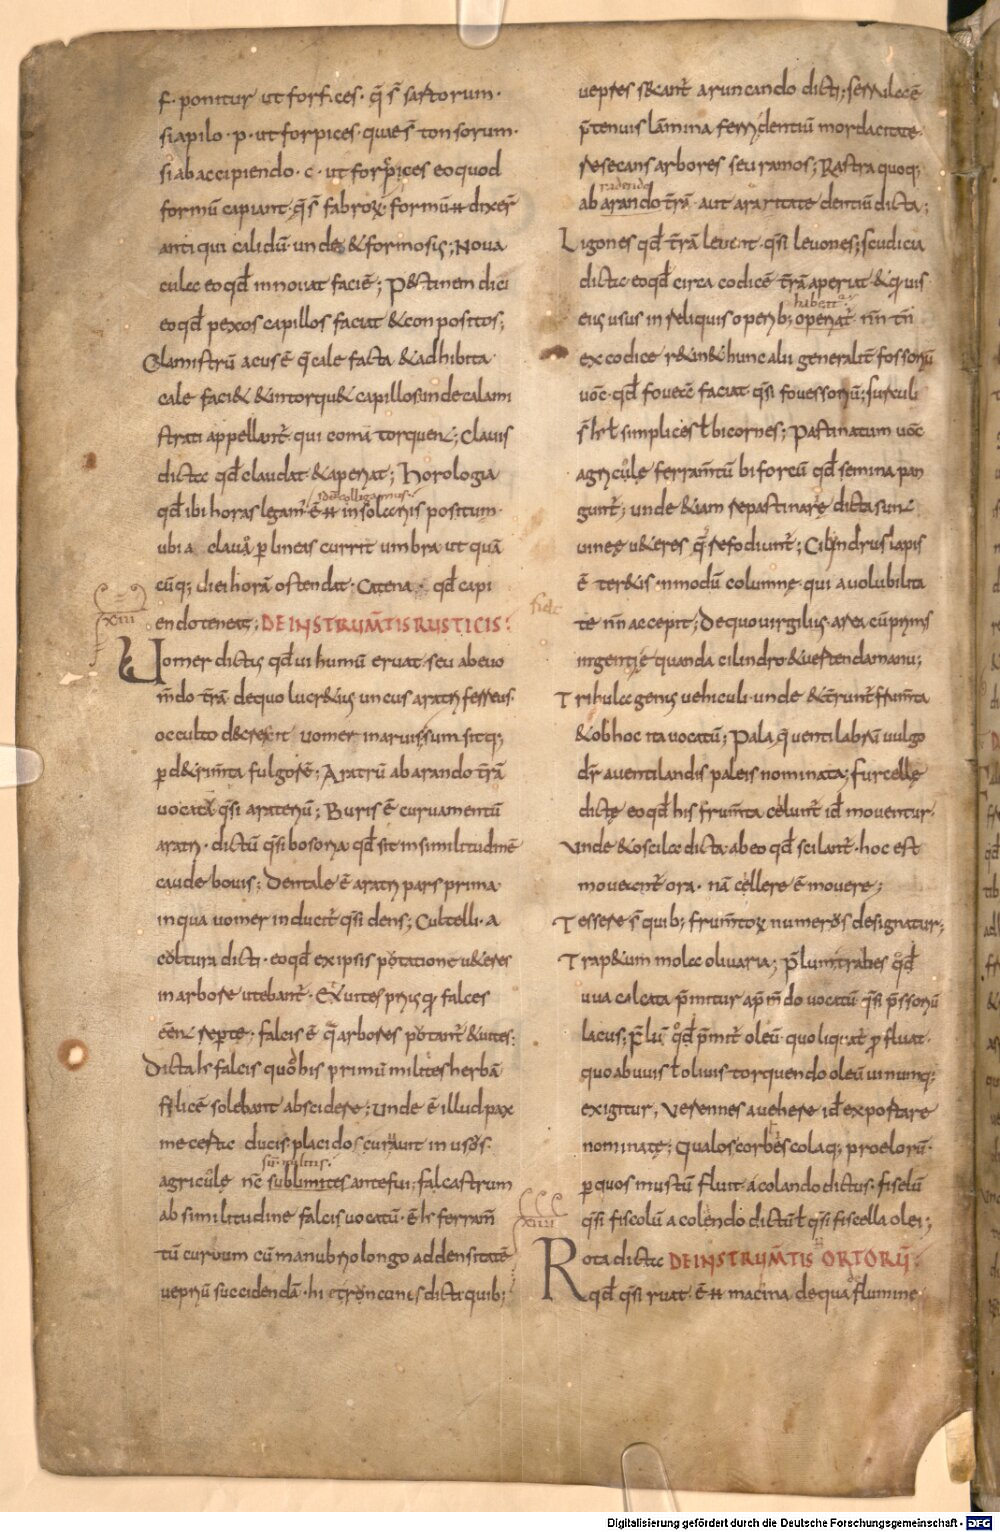 f· ponitur ut forfices· q̄ s̄ sartorum·
si a pilo· p· ut forpices· quae s̄ tonsorum·
si ab accipiendo· c· ut forcipices eo quod
formū capiant· q̄ s̄ fabroꝝ· formū n̄ dixer̄
antiqui calidū· unde & formosis; Nova
cula eo qđ innovat faciē; P&tinem dici
eo qđ pexos capillos faciat & conpositos;
Clamistrū acus ē q̄ cale facta & adhibita
cale faci& & intorqu& capillos unde calami
strati appellant̄· qui comā torquent; Clavis
dicta qđ claudat & aperiat; Horologia
qđ ibi horas legam̄· ē n̄ in solariis positum·
id ē colligamus
ubi a clavo p lineis currit umbra ut quā
cūq; diei horā ostendat; Catena· qđ capi
endo teneat; DE INSTRUM̄TIS RUSTICIS:
XIII
Vomer dictus qđ vi humū eruat· seu ab evo
m̄do t̄rā de quo lucr&ius uncus aratri ferreus·
occulto decrescit vomer in arvis sum sitq;
p d&rim̄ta fulgorē; Aratrū ab arando t̄rā
vocatū q̄si araterū; Buris ē curvamentū
aratri· dictū q̄si bosoria qđ sit in similitudinē
caude bovis; Dentale ē aratri pars prima
in qua vomer inducit̄ q̄si dens; Cultelli· a
coltura dicti· eo qđ ex ipsis potatione v&eres
in arbore utebant̄· Ex vites priusq̄ falces
eent repte· falcis ē q̄ arbores potant̄ & vites;
Dicta h̄ falcis quo his primū milites herbā
filicē solebant abscidere; Unde ē illud pax
me certa ducis placidos curvavit in usos·
sū militis
agricule n̄c sublimites ante fui; falcastrum
ab similitudine falcis vocatū· ē h̄ ferram̄
tū curvum cū manubrio longo ad densitatē
vepriū succidendā· hi & runcones dicti quib;
vepres secant̄ a runcando dicti; serra lecē
p̄tenuis lāmina ferri dentiū mordacitate
resecans arbores seu ramos; Rastra quoq;
radendo
ab arando t̄rā aut a raritate dentiū dicta;
Ligones qđ t̄rā levent q̄si levones; scudicia
dicta eo qđ circa codicē t̄rā aperiat & q̄vis
habet̄
eius usus in reliquis operib; operat̄ nn̄ tn̄
ex codice r&in& hunc alii generalit̄ fossoriū
voc̄ qđ foveā faciat q̄si fovessoriū; surculi
s̄ h̄ ł simplices ł bicornes; Pastinatum voc̄
agricule ferram̄tū biforcū qđ semina pan
gunt̄; unde & iam repastinare dicta sunt
vinee v&eres q̄ refodiunt̄; Cilindrus lapis
ē ter&is in modū columne qui a volubilita
te nn̄ accepit; De quo virgilius area cū primis
ingentie quanda cilindro & vertenda manu;
Tribula genus vehiculi unde & t̄runt̄ frum̄ta
& ob hoc ita vocatū; Pala q̄ ventilabrū vulgo
dr̄ a ventilandis paleis nominata; furcelle
dicte eo qđ his frum̄ta celunt̄ id moventur·
Unde & oscila dicta ab eo qđ scilant̄· hoc est
moveant̄ ora· nā cellere ē movere;
Tessere s̄ quib; frum̄toꝝ numeros designatur;
Trap&um mola olivaria; P̄lum trabes q̄đ
uva calcata p̄mitur a p̄m̄do vocatū q̄si p̄ssoriū
lacus; P̄lū q̄đ p̄mit̄ oleū· quo liquat̄ p fluat·
quo ab uvis ł olivis torquendo oleū vinumq;
exigitur; Verennes a vehere id exportare
nominate; Qualos corbes colaq; proelorū·
p quos mustū fluit a colando dictus· fiscū
q̄si fiscolū a colendo dictū ł q̄si fiscella olei;
XIIII
Rota dicta DE INSTRUM̄TIS ORTORŪ:
qđ q̄si ruat· ē n̄ macina de qua flumine
Digitalisierung gefördert durch die Deutsche Forschungsgemeinschaft - DFG